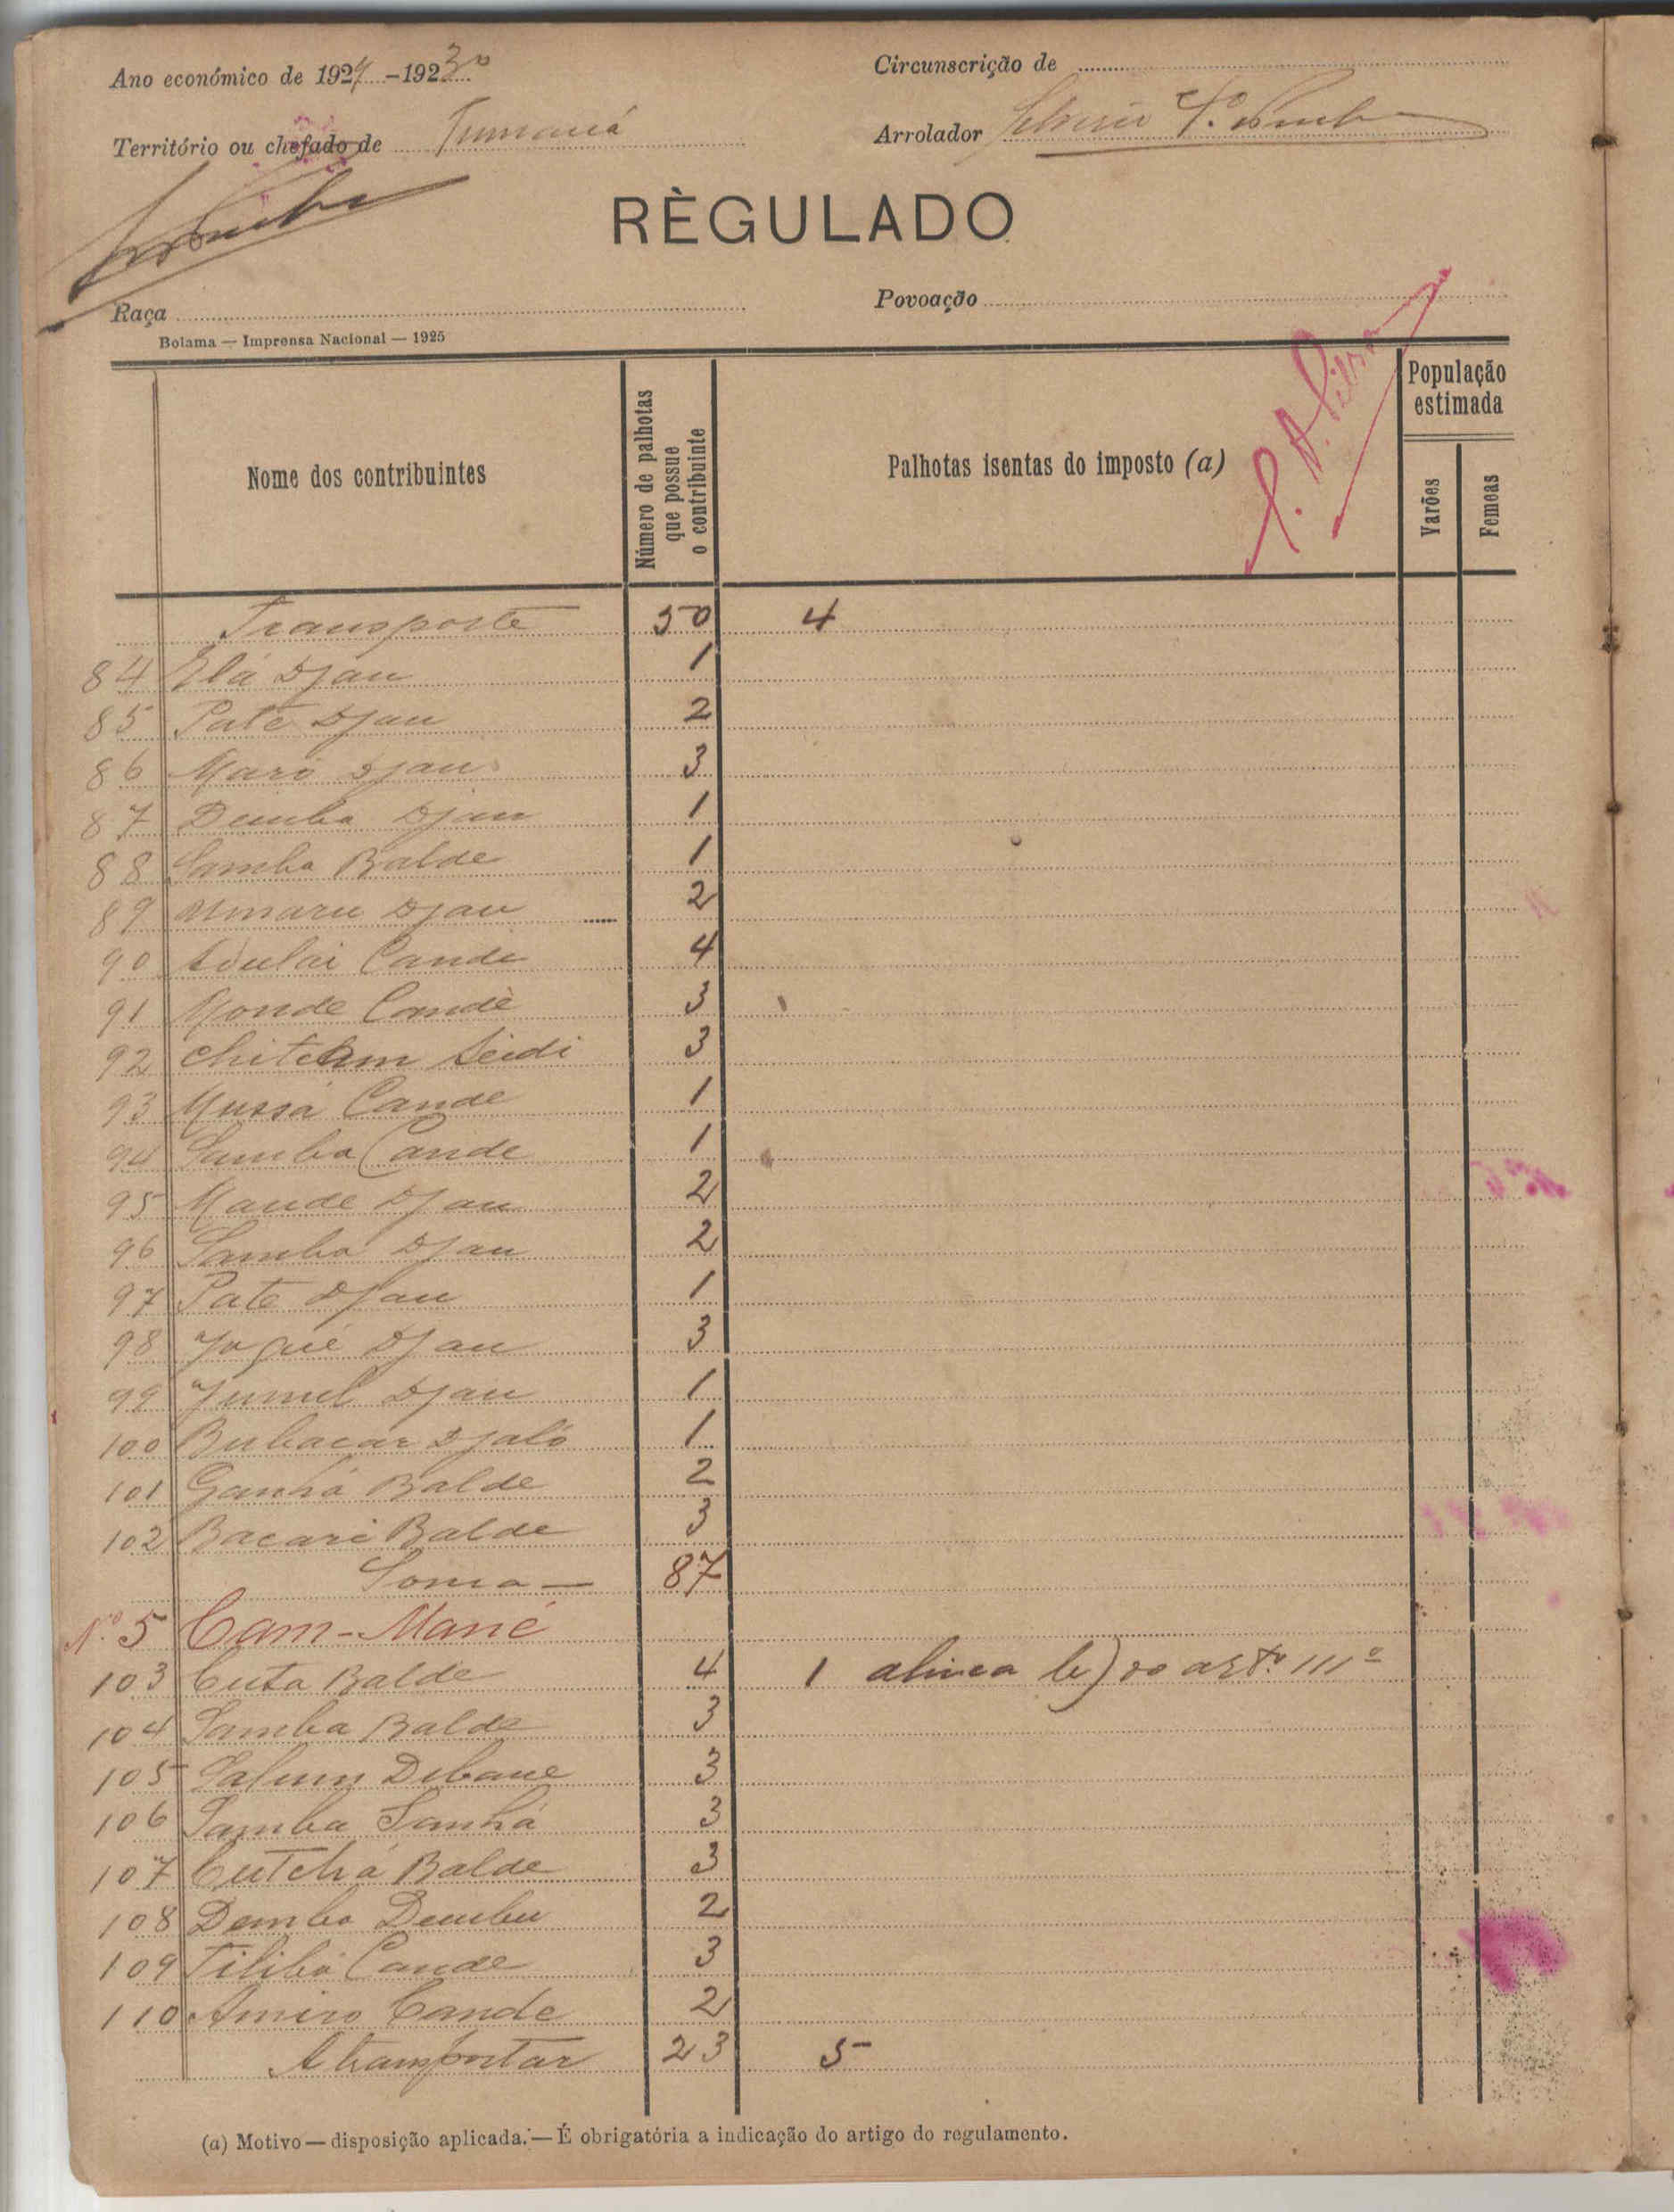 Ano económico de 1929 -1930
Circunscrição de
Território ou chefado de Tumaná
Arrolador
RÈGULADO
Raça
Povoação
Bolama — Imprensa Nacional — 1925
Nome dos contribuintes
Número de palhotas que possue o contribuinte
Palhotas isentas do imposto (a)
População estimada
Varões
Femeas
Transporte 50 4
84 Elá Djau 1
85 Paté Djau 2
86 Maró Djau 3
87 Demba Djau 1
88 Samba Balde 1
89 Umaru Djau 2
90 Adulai Cande 4
91 Monde Candè 3
92 Seidi 3
93 Mussá Cande 1
94 Samba Cande 1
95 Maude Djau 2
96 Samba Djau 2
97 Pate Djau 1
98 Djau 3
99 Djau 1
100 Bubacar Djaló 1
101 Ganhá Balde 2
102 Bacari Balde 3
Soma — 87
N.º 5 Cam-Mané
103 Cuta Balde 4 1 alinea b) do artº 111º
104 Samba Balde 3
105 3
106 Samba Sanhá 3
107 Cutchá Balde 3
108 Demba Dembu 2
109 Tilibó Cande 3
110 Amiro Cande 2
A transportar 23 5
(a) Motivo — disposição aplicada. — É obrigatória a indicação do artigo do regulamento.